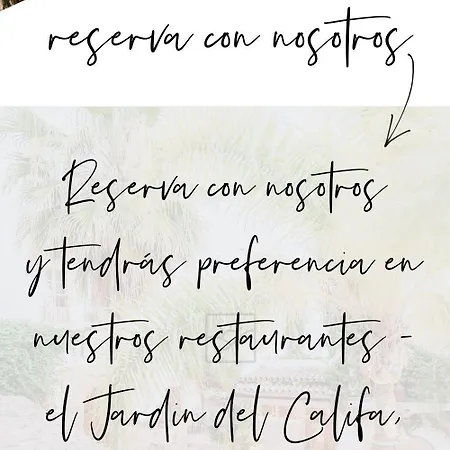 reserva con nosotros
Reserva con nosotros
y tendrás preferencia en
nuestros restaurantes -
el Jardin del Califa,